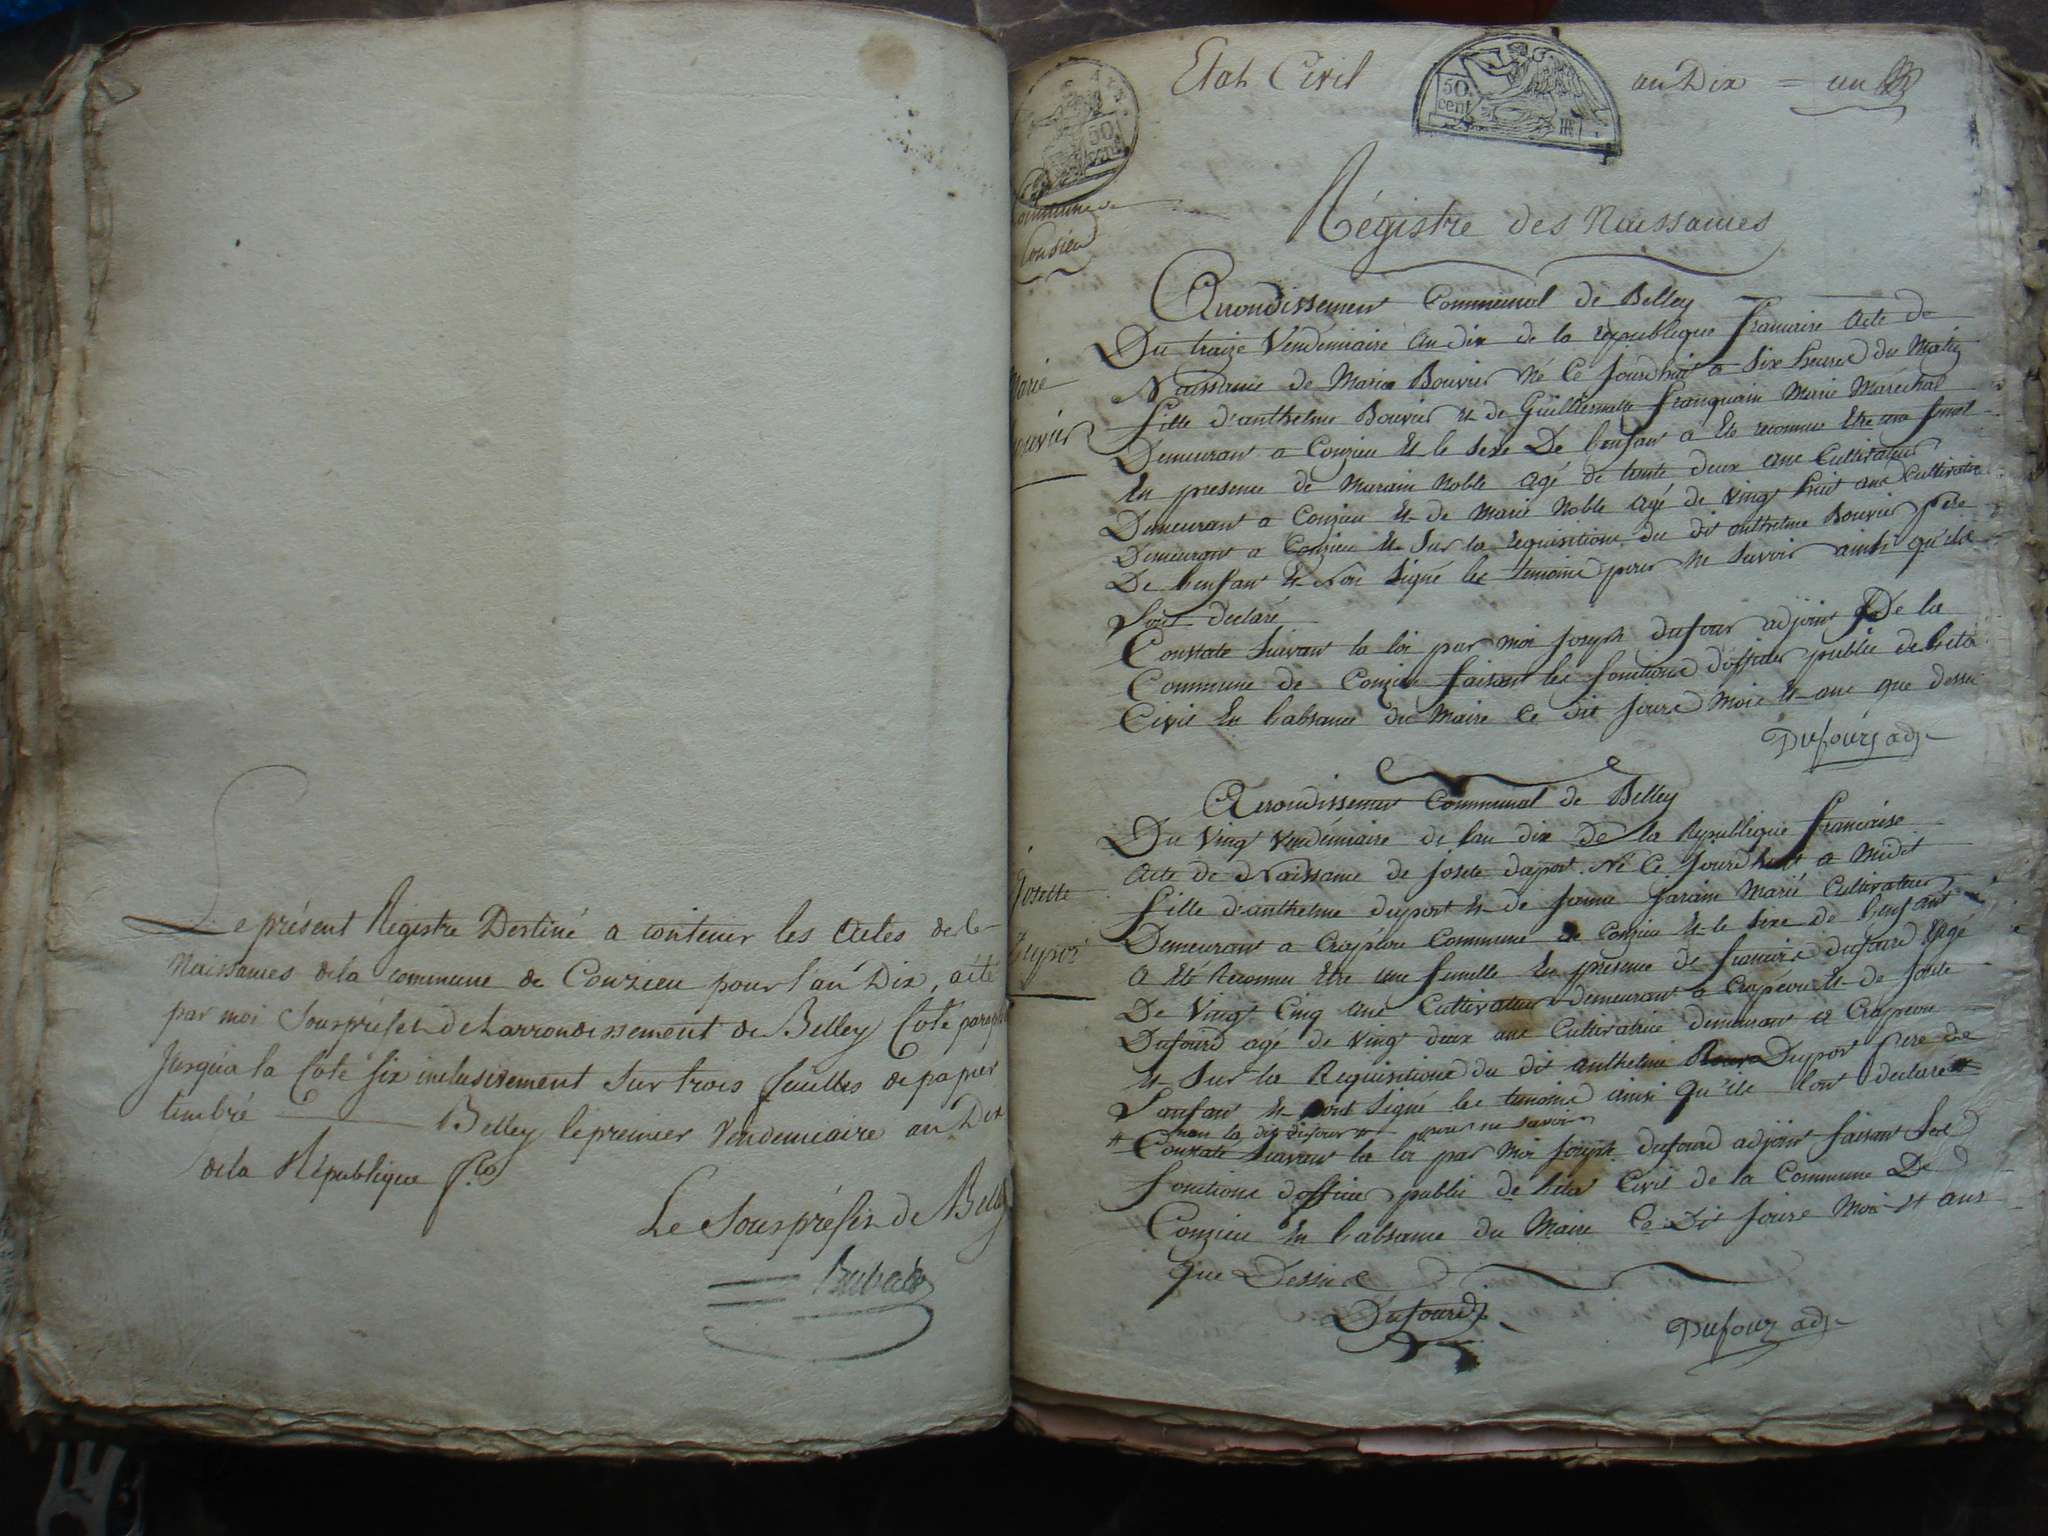 Le présent Registre Destiné a contenir les actes de
Naissances de la commune de Conzieu pour l'an Dix, a été
par moi Sousprefet de Larrondissement de Belley Coté paraphé
Jusqu'a la Cote Six inclusivement sur trois feuilles de papier
timbré Belley le premier Vendemiaire an Dix
de la République
Le Sousprefet de Belley
Etat Civil
an Dix = un
50 cent
50
Commune de
Conzieu
Régistre des Naissances
Arrondissement Communal de Belley
Marie
Bouvier
Du traize Vendémiaire an dix de la republique francaise acte de
Naissance de Marie Bouvier Né Ce jourdhui a Six heures du Matin
fille d'anthelme Bouvier et de Guillermette franquain Marié Maréchal
Demeurant a Conzieu et le sexe De lenfant a ete reconnu Etre une femel
En presence de Marain Noble agé de trante deux ans Cultivateur
Demeurant a Conzieu et de Marie Noble agé de vingt huit ans Cultivatrice
Demeurant a Conzieu et Sur la requisitions du dit anthelme Bouvier pere
De lenfant et Non Signé les temoins pour Ne Savoir ainsi qu'ils
Lont declaré
Constate Suivant la loi par moi Joseph dufour adjoint De la
Commune de Conzieu faisant les fonctions d'officier public de leta
Civil En labsance du Maire Ce dit jours Mois et ans que dessu
Dufour adj
Arrondissement Communal de Belley
Josette
Duport
Du Vingt Vendémiaire de lan dix de la Republique francaise
Acte de Naissance de Josete duport Né Ce Jourdhuit a Midit
fille d'anthelme duport et de Marié Cultivateur
Demeurant a Crapéou Commune de Conzieu et le sexe de lenfant
a ete Reconnu Etre une femelle En presence de francois dufourd agé
De Vingt Cinq ans Cultivateur demeurant a Crapéou et de Josete
Dufourd agé de Vingt deux ans Cultivatrice demeurant a Crapeou
et Sur la Requisitions du dit anthelme Duport Pere de
Lanfant et Sont Signé les temoins ainsi qu'ils Lont declaré
non la dite dufour pour ne savoir
Constate Suivant la loi par Moi Joseph dufourd adjoint faisant les
fonctions dofficier public de leta Civil de la Commune De
Conzieu En labsance du Maire Ce Dit Jours Mois et ans
que Dessu
Dufourd
Dufour adj